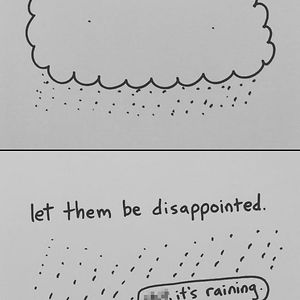 let them be disappointed.
it's raining.